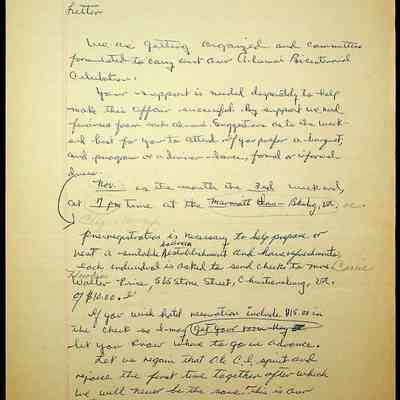 Letter
We are getting organized and committees
formulated to carry out our Alumni Bicentennial
Celebration.
Your support is needed desperately to help
make this affair successful. By support we need
finances from each alumni. Suggestions as to the week-
end best for you to attend if you prefer a banquet,
and program or a dinner-dance, formal or informal
dress.
Nov. is the month the 3rd weekend,
at 7 pm time at the Marriott Blksbg, Va.
preregistration is necessary to help prepare or
rent a suitable establishment and
each individual is asked to send checks to Mrs. Carrie
Walter Price, 565 Stone Street, Christiansburg, VA.
of $10.00.
If you wish hotel reservation include $15.00 in
the check so I may get your room key
let you know where to go in advance.
Let us regain that Ole C.I. spirit and
rejoice the first time together after which
we will never be the same. This is our